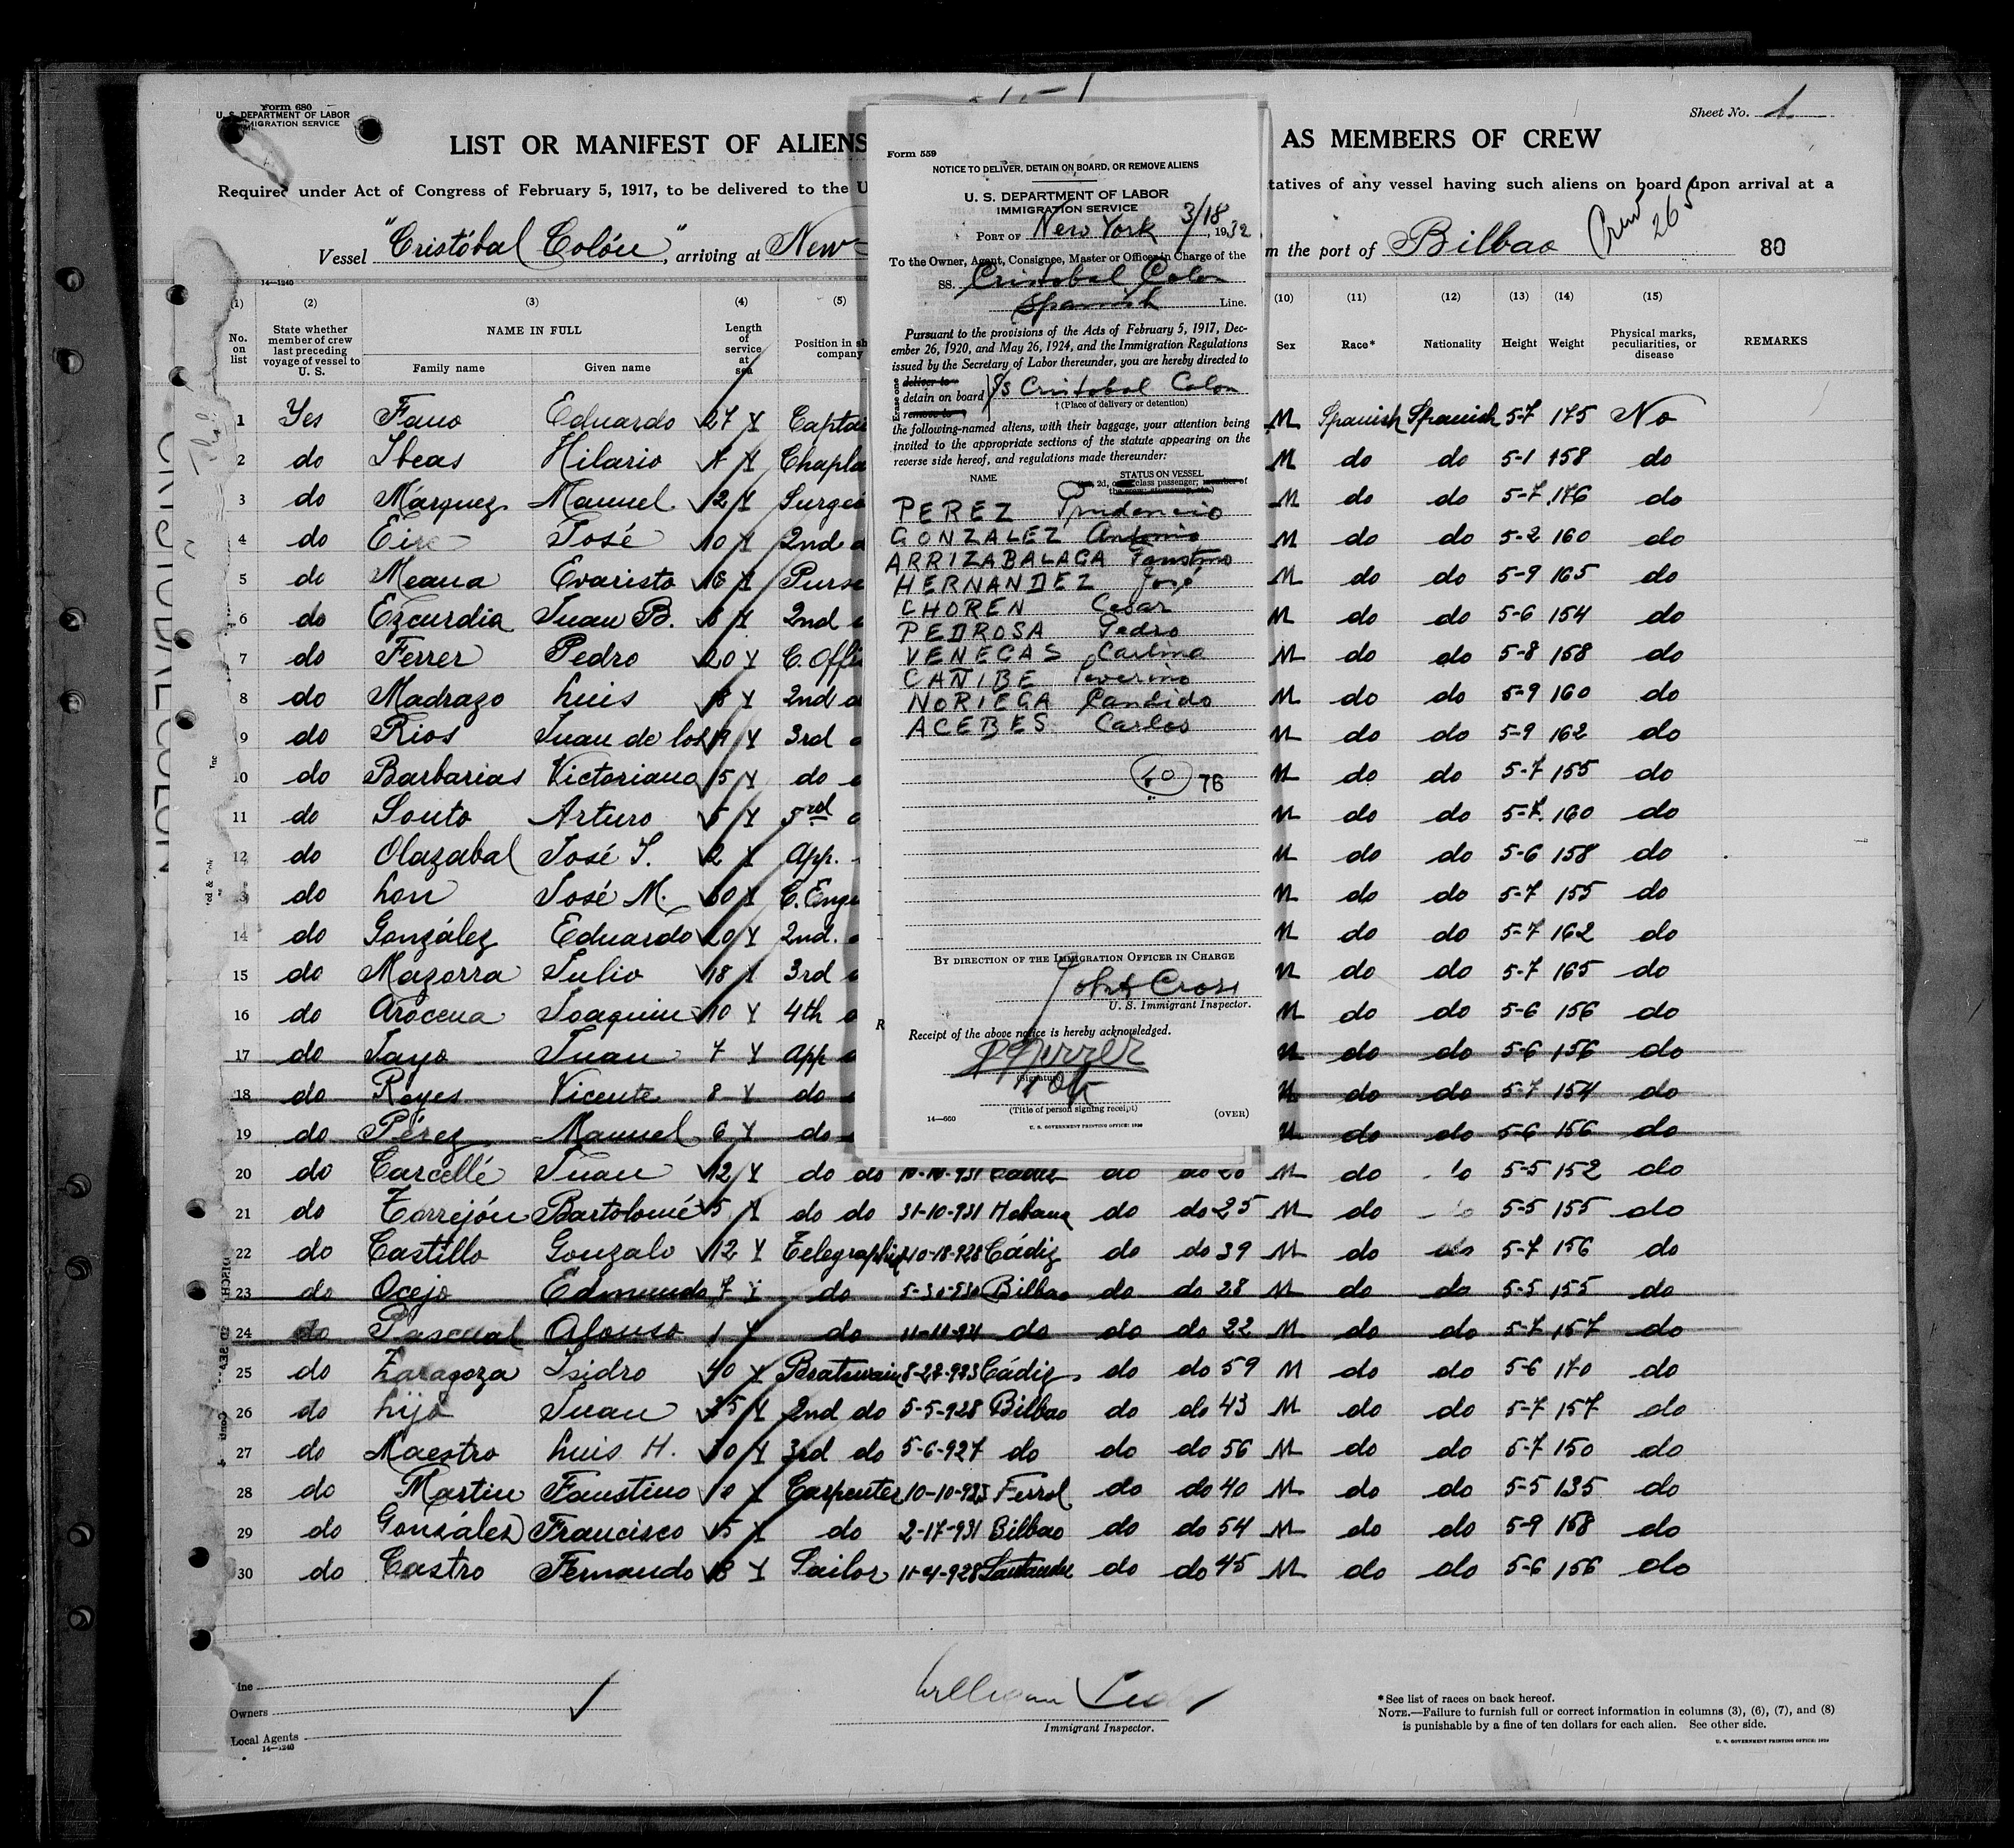 Form 680
U. S. DEPARTMENT OF LABOR
IMMIGRATION SERVICE
Sheet No. 1
LIST OR MANIFEST OF ALIENS
AS MEMBERS OF CREW
Required under Act of Congress of February 5, 1917, to be delivered to the U
tatives of any vessel having such aliens on board upon arrival at a
Vessel "Cristóbal Colón", arriving at New
m the port of Bilbao
Crew 265
80
14—1240
(1) (2) (3) (4) (5) (10) (11) (12) (13) (14) (15)
No. on list
State whether member of crew last preceding voyage of vessel to U. S.
NAME IN FULL
Family name Given name
Length of service at sea
Position in sh company
Sex Race* Nationality Height Weight
Physical marks, peculiarities, or disease
REMARKS
1 Yes Fano Eduardo 27 Y Captai M Spanish Spanish 5-7 175 No
2 do Ibeas Hilario Y Chapla M do do 5-1 158 do
3 do Márquez Manuel 12 Y Surgeo M do do 5-7 176 do
4 do José 10 Y 2nd M do do 5-2 160 do
5 do Meana Evaristo 16 Y Purse M do do 5-9 165 do
6 do Ezcurdia Juan B. 8 Y 2nd M do do 5-6 154 do
7 do Ferrer Pedro 20 Y C. Offi M do do 5-8 158 do
8 do Madrazo Luis 18 Y 2nd M do do 5-9 160 do
9 do Rios Juan de los 19 Y 3rd M do do 5-9 162 do
10 do Barbarias Victoriano 15 Y do M do do 5-7 155 do
11 do Souto Arturo 5 Y 5rd M do do 5-7 160 do
12 do Olazabal José I. 2 Y App. M do do 5-6 158 do
13 do Lon José M. 30 Y C. Engi M do do 5-7 155 do
14 do González Eduardo 20 Y 2nd. M do do 5-7 162 do
15 do Mazorra Julio 18 Y 3rd M do do 5-7 165 do
16 do Arocena Joaquin 10 Y 4th M do do 5-6 156 do
17 do Tayo Juan 7 Y App M do do 5-6 156 do
18 do Reyes Vicente 8 Y do M do do 5-7 154 do
19 do Pérez Manuel 6 Y do M do do 5-6 156 do
20 do Carcellé Juan 12 Y do do 10-10-931 Cádiz do do 20 M do do 5-5 152 do
21 do Torrejón Bartolomé 5 Y do do 31-10-931 Habana do do 25 M do do 5-5 155 do
22 do Castillo Gonzalo 12 Y Telegraphist 10-18-928 Cádiz do do 39 M do do 5-7 156 do
23 do Ocejo Edmundo 7 Y do 5-30-930 Bilbao do do 28 M do do 5-5 155 do
24 do Pascual Alonso 1 Y do 11-11-931 do do do 22 M do do 5-7 157 do
25 do Zaragoza Isidro 40 Y Boatswain 8-27-923 Cádiz do do 59 M do do 5-6 170 do
26 do Lijó Juan 25 Y 2nd do 5-5-928 Bilbao do do 43 M do do 5-7 157 do
27 do Maestro Luis H. 30 Y 3rd do 5-6-927 do do do 56 M do do 5-7 150 do
28 do Martin Faustino 10 Y Carpenter 10-10-933 Ferrol do do 40 M do do 5-5 135 do
29 do González Francisco 15 Y do 2-17-931 Bilbao do do 54 M do do 5-9 158 do
30 do Castro Fernando 18 Y Sailor 11-4-928 Santander do do 45 M do do 5-6 156 do
Form 559
NOTICE TO DELIVER, DETAIN ON BOARD, OR REMOVE ALIENS
U. S. DEPARTMENT OF LABOR
IMMIGRATION SERVICE
PORT OF New York 3/18, 1932
To the Owner, Agent, Consignee, Master or Officer in Charge of the
SS. Cristobal Colon
Spanish Line.
Pursuant to the provisions of the Acts of February 5, 1917, Dec-
ember 26, 1920, and May 26, 1924, and the Immigration Regulations
issued by the Secretary of Labor thereunder, you are hereby directed to
Erase one
deliver to
detain on board S/S Cristobal Colon
remove to
† (Place of delivery or detention)
the following-named aliens, with their baggage, your attention being
invited to the appropriate sections of the statute appearing on the
reverse side hereof, and regulations made thereunder:
NAME STATUS ON VESSEL
2d, class passenger; member of
the crew, stowaway, etc.)
PEREZ Prudencio
GONZALEZ Antonio
ARRIZABALAGA Faustino
HERNANDEZ José
CHOREN Cesar
PEDROSA Pedro
VENEGAS Carlina
CAÑIBE Severino
NORIEGA Candido
ACEBES Carlos
10
76
BY DIRECTION OF THE IMMIGRATION OFFICER IN CHARGE
John Cross
U. S. Immigrant Inspector.
Receipt of the above notice is hereby acknowledged.
P Ferrer
(Signature)
(Title of person signing receipt)
14—660
(OVER)
U. S. GOVERNMENT PRINTING OFFICE: 1930
Line
Owners
Local Agents
14—1240
William
Immigrant Inspector.
*See list of races on back hereof.
NOTE.—Failure to furnish full or correct information in columns (3), (6), (7), and (8)
is punishable by a fine of ten dollars for each alien. See other side.
U. S. GOVERNMENT PRINTING OFFICE: 1929
CRISTOBAL COLON